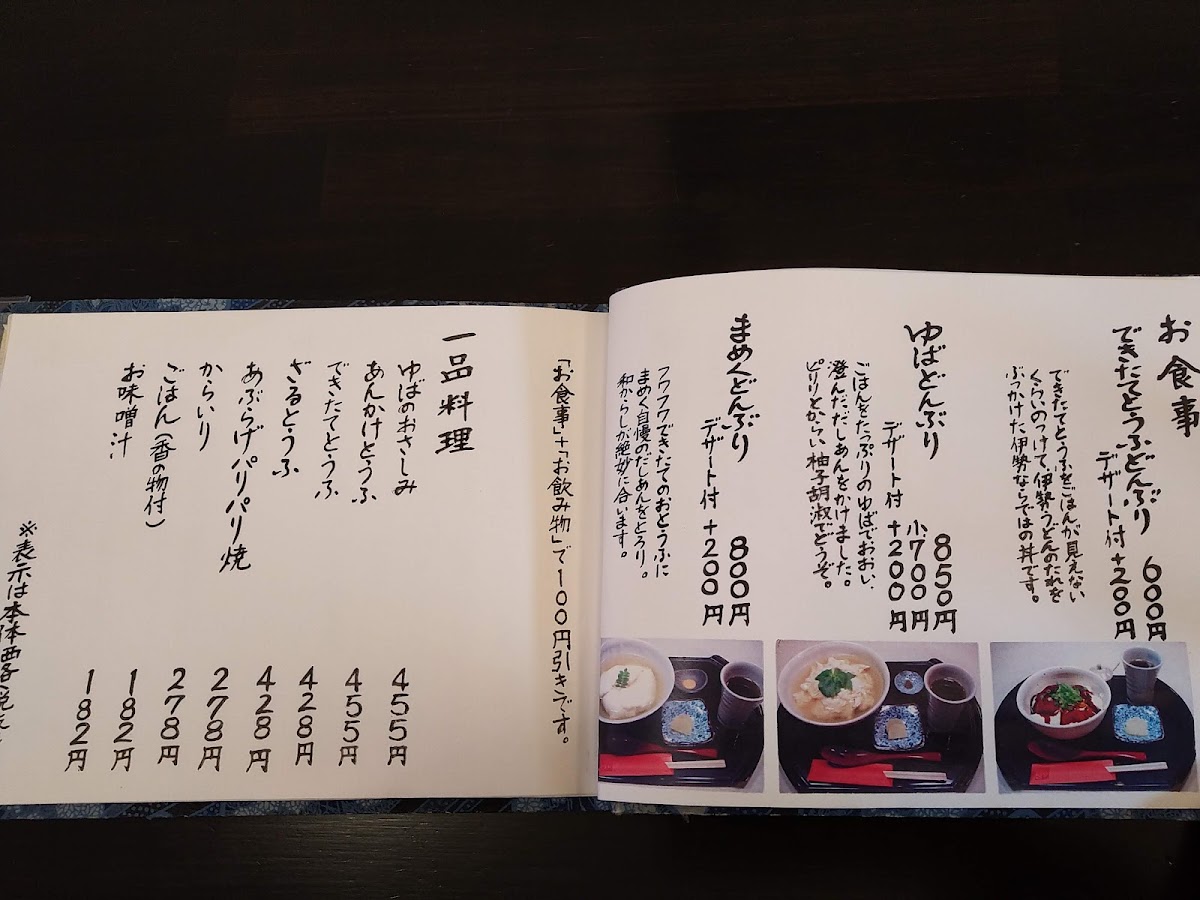 お食事
できたてとうふどんぶり 600円
デザート付 +200円
できたてとうふをごはんが見えない
くらいのっけて伊勢うどんのたれを
ぶっかけた伊勢ならではの丼です。
ゆばどんぶり 850円
小700円
デザート付 +200円
ごはんをたっぷりのゆばでおおい、
澄んだだしあんをかけました。
ピリりとからい柚子胡淑でどうぞ。
まめくどんぶり 800円
デザート付 +200円
フワフワできたてのおとうふに
まめく自慢のだしあんをとろり。
和からしが絶妙に合います。
「お食事」+「お飲み物」で100円引きです。
一品料理
ゆばのおさしみ 455円
あんかけとうふ 455円
できたてとうふ 428円
ざるとうふ 428円
あぶらげパリパリ焼 278円
からいり 278円
ごはん(香の物付) 182円
お味噌汁 182円
※表示は本体価格(税